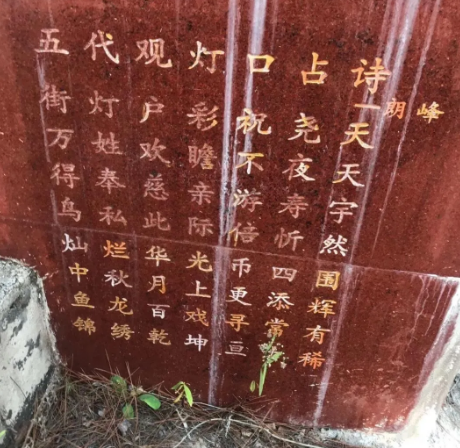 峰
朗
诗一天天宇然围辉有稀
占尧夜寿忻四添常
口祝不游倍币更寻亘
灯彩瞻亲际光上戏坤
观户欢慈此华月百乾
代灯姓奉私烂秋龙绣
五街万得鸟灿中鱼锦